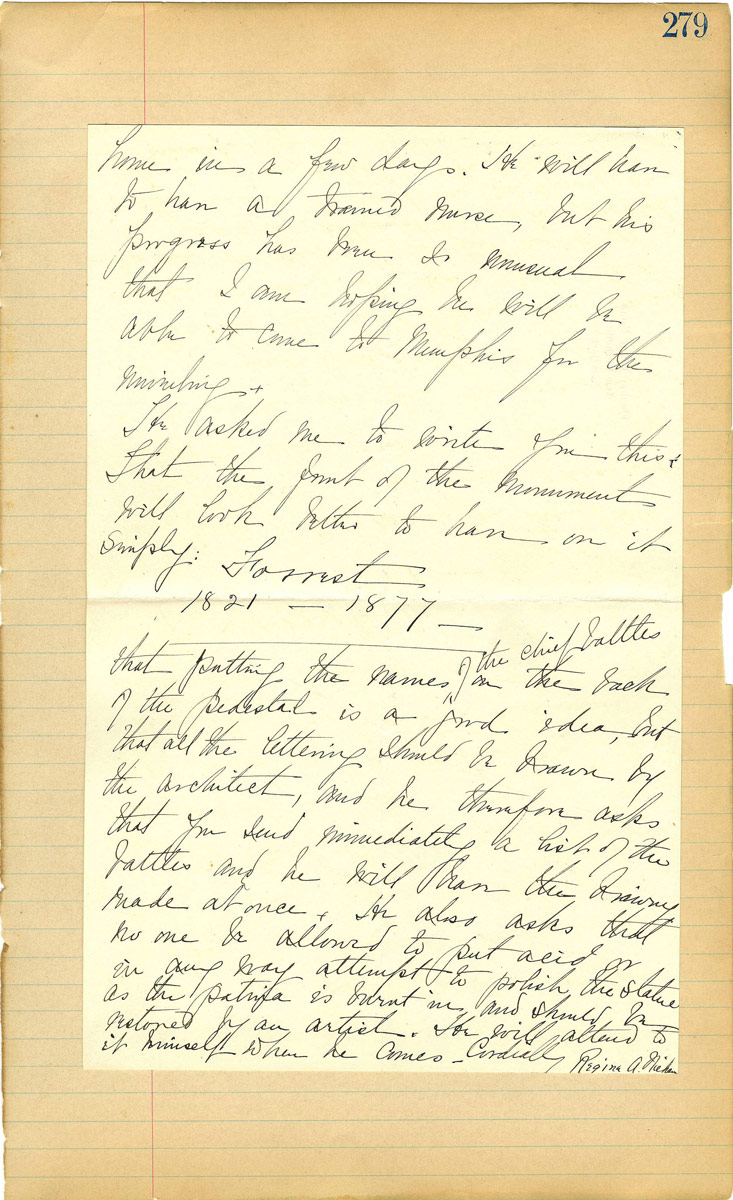 279
home in a few days. He will have
to have a trained nurse, but his
progress has been so unusual
that I am hoping he will be
able to come to Memphis for the
unveiling.
He asked me to write you this:
That the front of the monument
will look better to have on it
simply:
Forrest
1821 — 1877
that putting the names of the chief battles
on the back
of the pedestal is a good idea, but
that all the lettering should be drawn by
the architect, and he therefore asks
that you send immediately a list of the
battles and he will have the drawing
made at once. He also asks that
no one be allowed to put acid or
in any way attempt to polish the statue
as the patina is burnt in, and should be
restored by an artist. He will attend to
it himself when he comes - Cordially
Regina A.